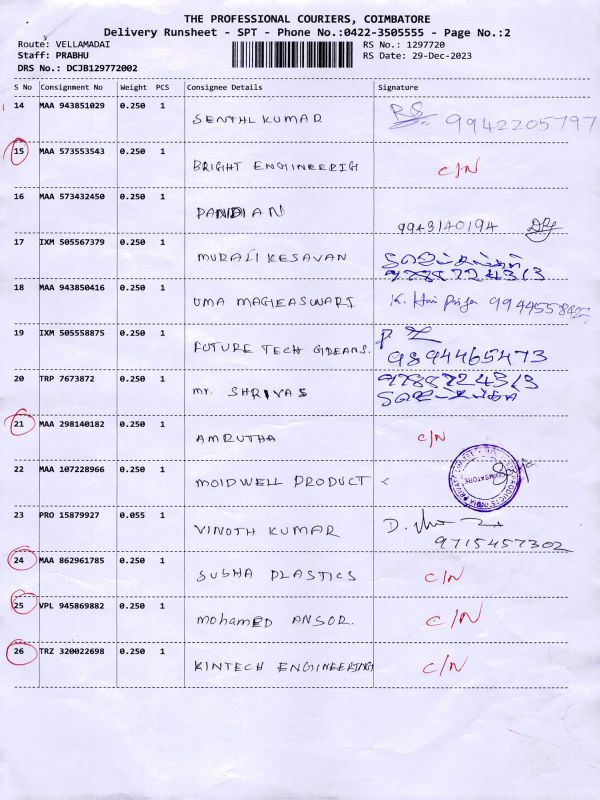 THE PROFESSIONAL COURIERS, COIMBATORE
Delivery Runsheet - SPT - Phone No.:0422-3505555 - Page No.:2
Route: VELLAMADAI RS No.: 1297720
Staff: PRABHU RS Date: 29-Dec-2023
DRS No.: DCJB129772002
S No Consignment No Weight PCS Consignee Details Signature
14 MAA 943851029 0.250 1 SENTHL KUMAR RS 9942205797
15 MAA 573553543 0.250 1 BRIGHT ENGINEERIG C/N
16 MAA 573432450 0.250 1 PANDIAN 9943140194
17 IXM 505567379 0.250 1 MURALI KESAVAN
9788724313
18 MAA 943850416 0.250 1 UMA MAGHEASWARI K. Hari Priya 99445584
19 IXM 505558875 0.250 1 FUTURE TECH GIDEANS.
9894465473
20 TRP 7673872 0.250 1 mr. SHRIVAS 9788724313
21 MAA 298140182 0.250 1 AMRUTHA C/N
22 MAA 107228966 0.250 1 MOIDWELL PRODUCT <
COIMBATORE
23 PRO 15879927 0.055 1 VINOTH KUMAR D.
9715457302
24 MAA 862961785 0.250 1 SUBHA PLASTICS C/N
25 VPL 945869882 0.250 1 mohamED ANSOR. C/N
26 TRZ 320022698 0.250 1 KINTECH ENGINEERING C/N